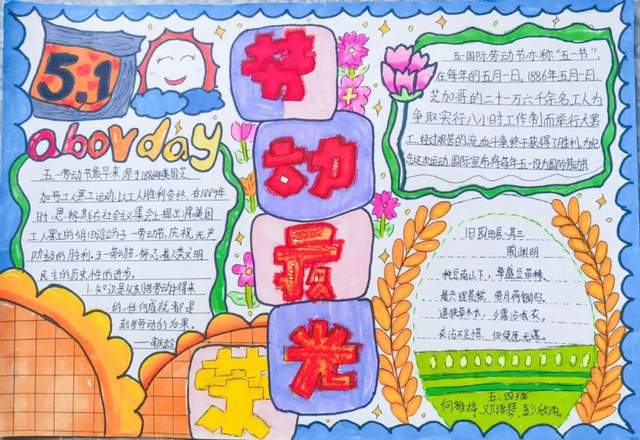 5.1
abor day
劳
动
最
光
荣
五一劳动节最早来源于1886年美国芝
加哥工人罢工运动,以工人胜利告终,在1889年
时,恩格斯在社会主义集会上提出将美国
工人罢工的5月1日设立为五一劳动节,庆祝无产
阶级的胜利,五一劳动节,标志着人类文明
民主的历史性的进步。
的任何成就都是
刻苦劳动的结果。
五一国际劳动节亦称“五一节”,
在每年的五月一日,1886年五月一日,
芝加哥的二十一万六千余名工人为
争取实行八小时工作制而举行大罢
工,经过艰苦的流血斗争终于获得了胜利,为纪
念这次运动,国际宣布将每年五一设为国际劳动节
归园田居·其三
陶渊明
种豆南山下,草盛豆苗稀。
晨兴理荒秽,带月荷锄归。
道狭草木长,夕露沾我衣。
衣沾不足惜,但使愿无违。
五、四班